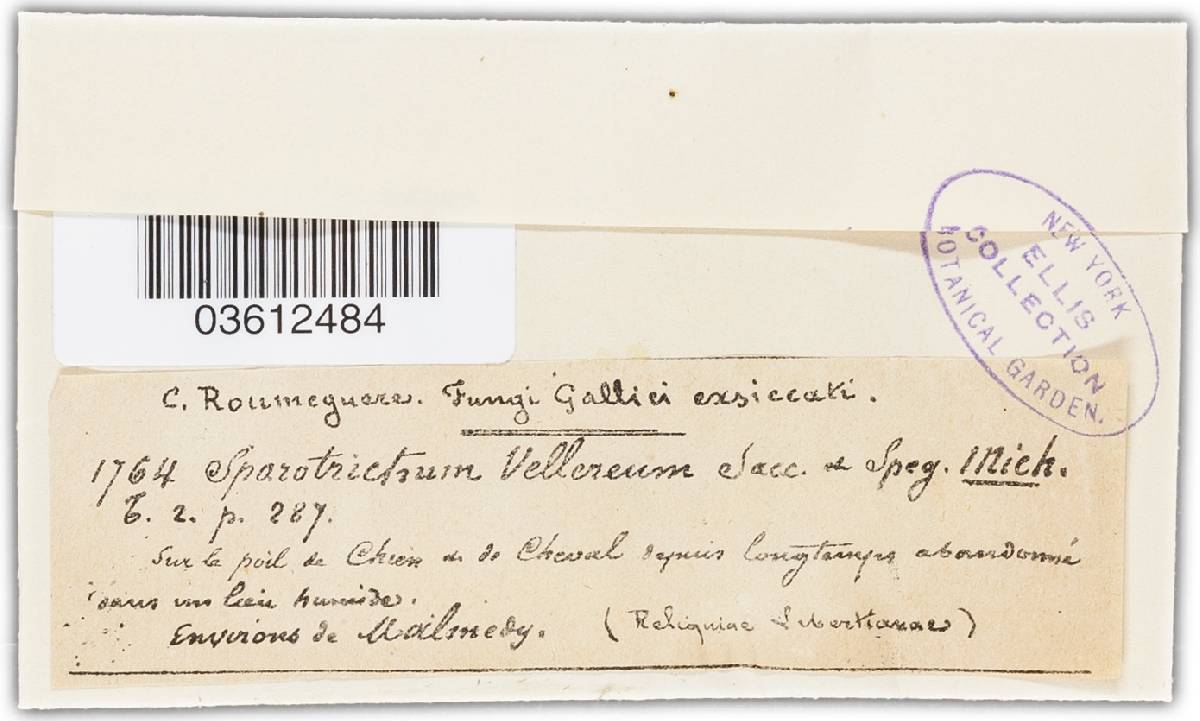 03612484
NEW YORK
ELLIS
COLLECTION
BOTANICAL GARDEN.
C. Roumeguere. Fungi Gallici exsiccati.
1764 Sporotrichum Vellereum Sacc. & Speg. Mich.
T. 2. p. 287.
Sur le poil de Chien & de Cheval depuis longtemps abandonné
dans un lieu humide.
Environs de Malmedy. (Reliquiae Libertianae)